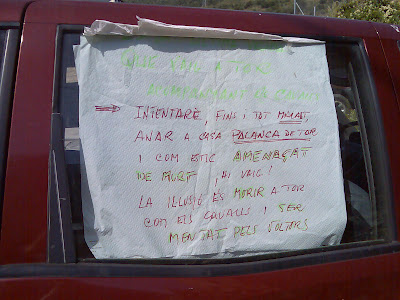 QUE VAIG A TOR
⇒ INTENTARE, FINS I TOT MALALT,
ANAR A CASA PALANCA DE TOR
I COM ESTIC AMENAÇAT
DE MORT, HI VAIG!
LA ILLUSIÓ ÉS MORIR A TOR
COM ELS CAVALLS I SER
MENJAT PELS VOLTORS